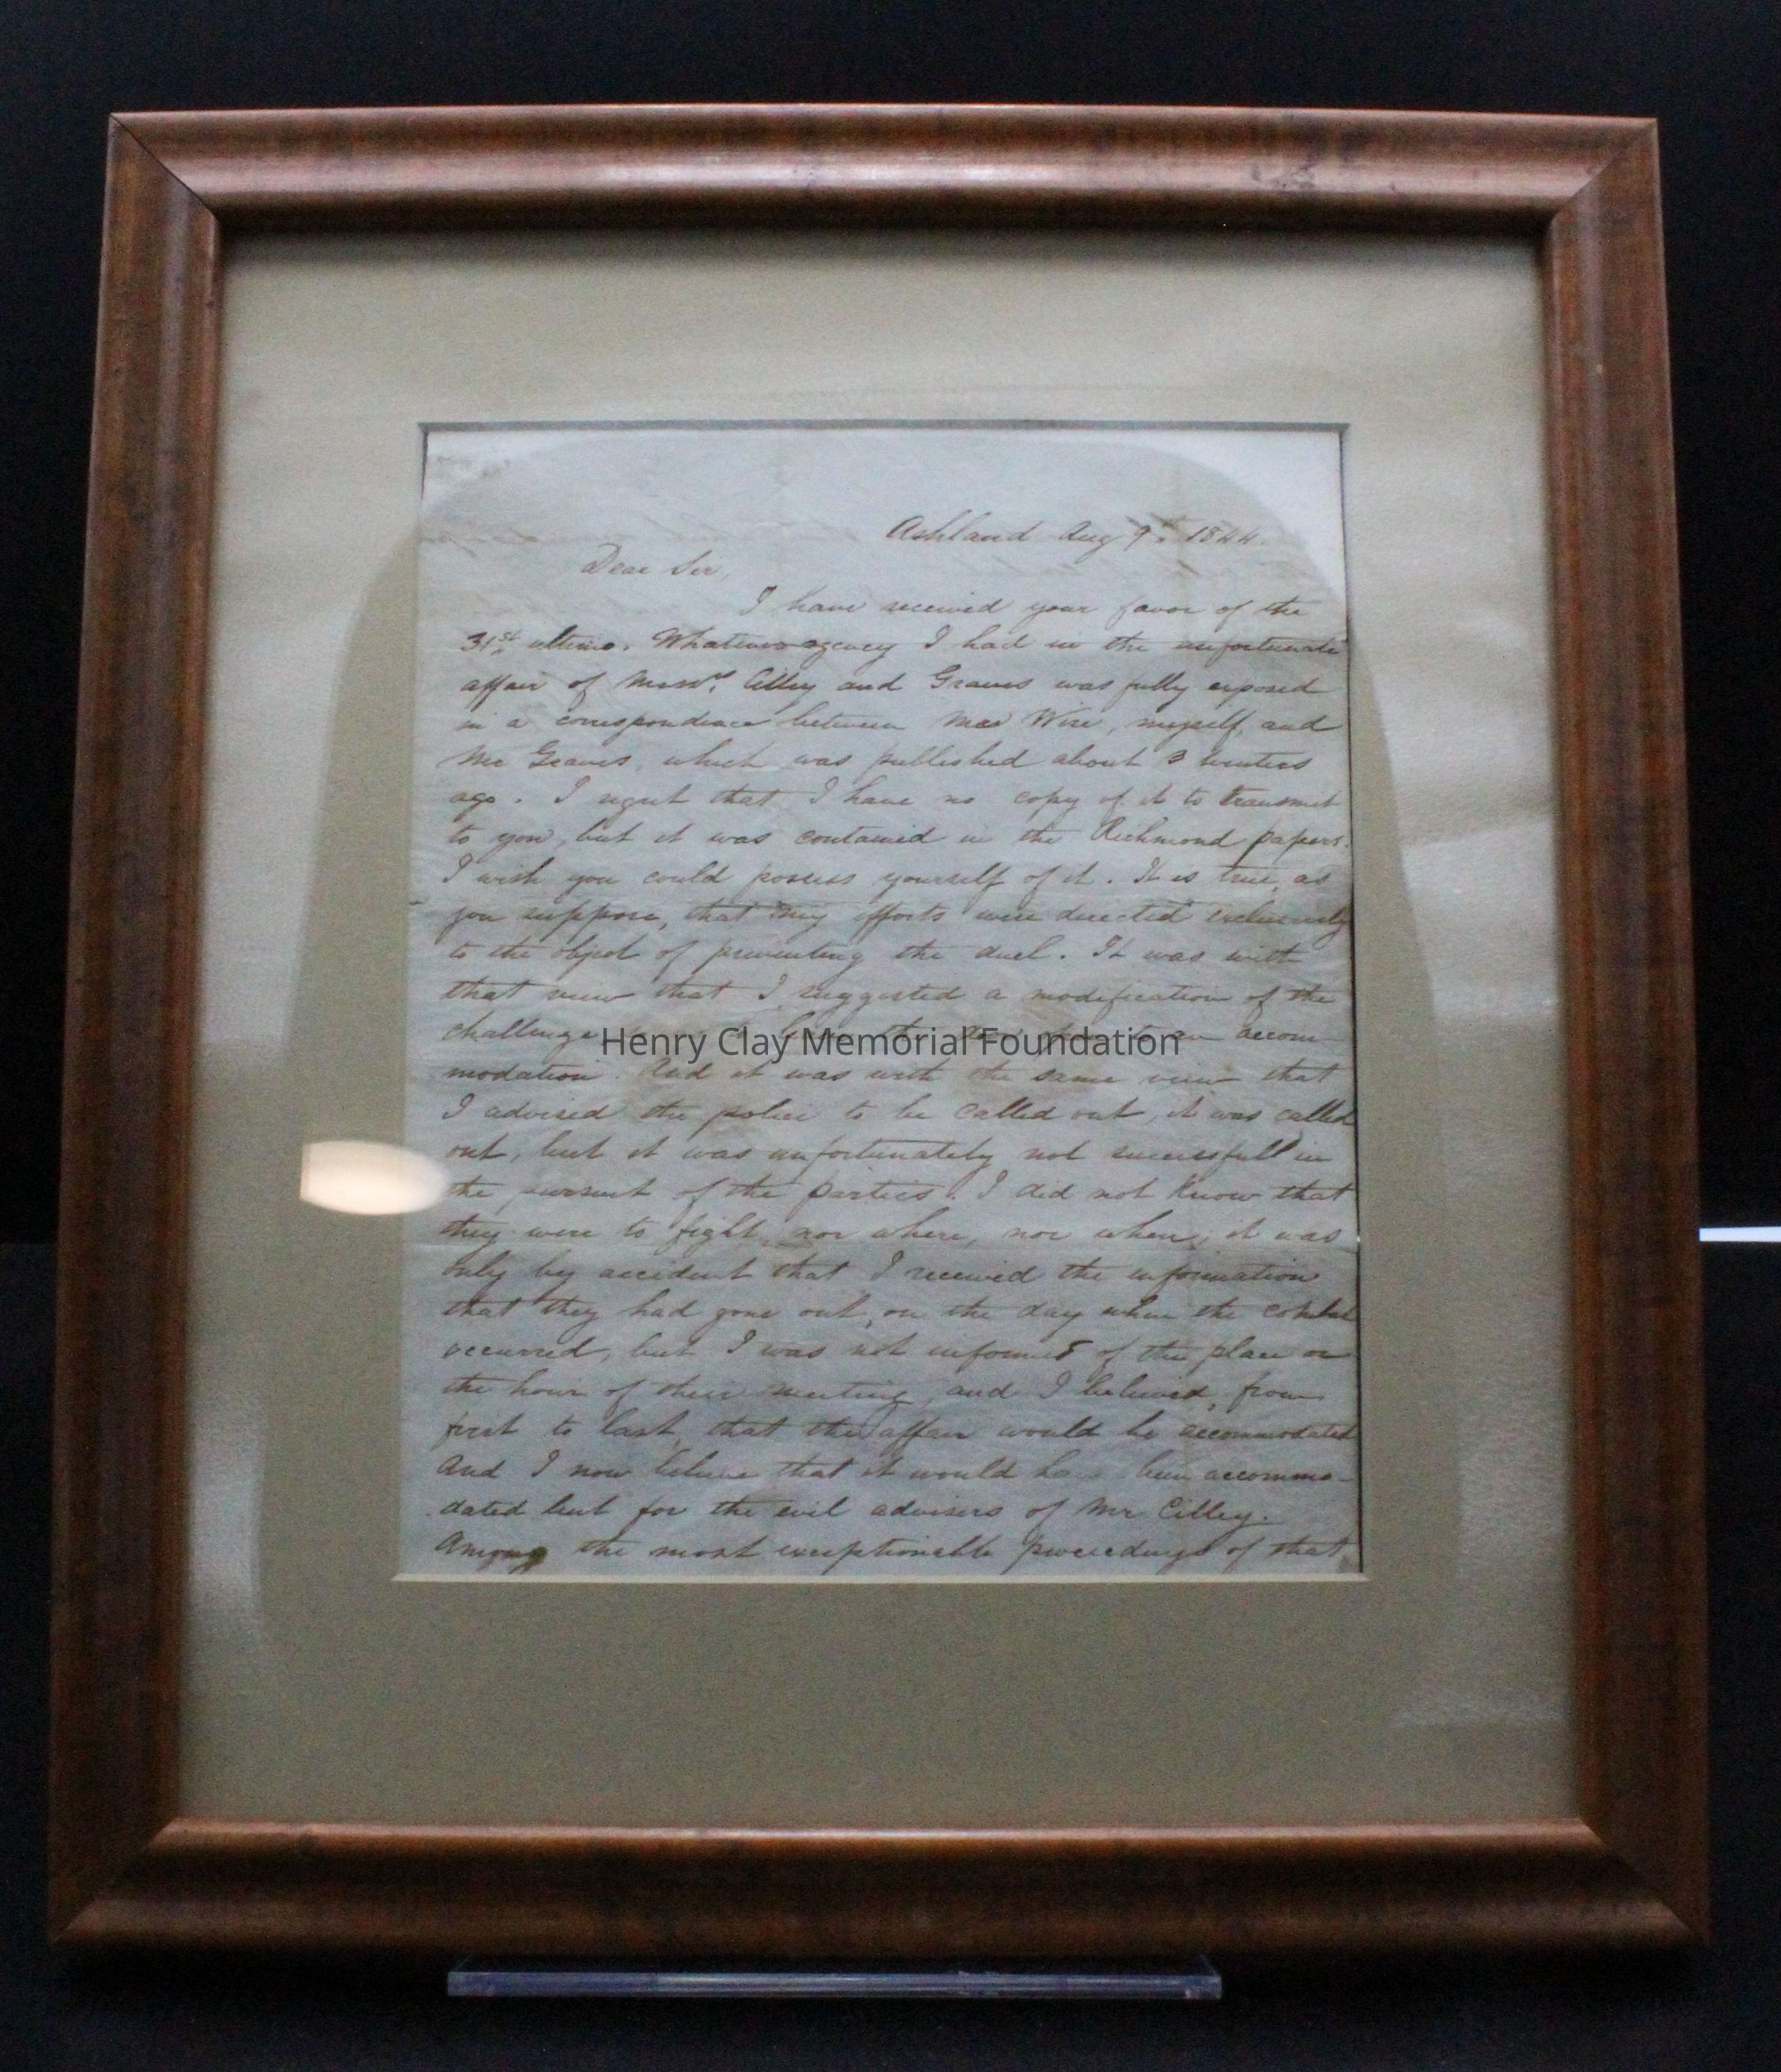 Ashland Aug 9th 1844.
Dear Sir,
I have received your favor of the
31st ultimo. Whatever agency I had in the unfortunate
affair of Messrs. Cilley and Graves was fully exposed
in a correspondence between Wise, myself, and
Mr Graves, which was published about 3 winters
ago. I regret that I have no copy of it to transmit
to you, but it was contained in the Richmond papers.
I wish you could possess yourself of it. It is true, as
you suppose, that my efforts were directed exclusively
to the object of preventing the duel. It was with
that view that I suggested a modification of the
challenge accom-
Henry Clay Memorial Foundation
modation. And it was with the same view that
I advised the police to be called out, it was called
out, but it was unfortunately not successfull in
the pursuit of the parties. I did not know that
they were to fight, nor where, nor when; it was
only by accident that I received the information
that they had gone out, on the day when the combat
occurred, but I was not informed of the place or
the hour of their meeting, and I believed, from
first to last, that the affair would be accommodated
And I now believe that it would have been accommo-
dated but for the evil advisers of Mr Cilley.
Among the most exceptionable proceedings of that